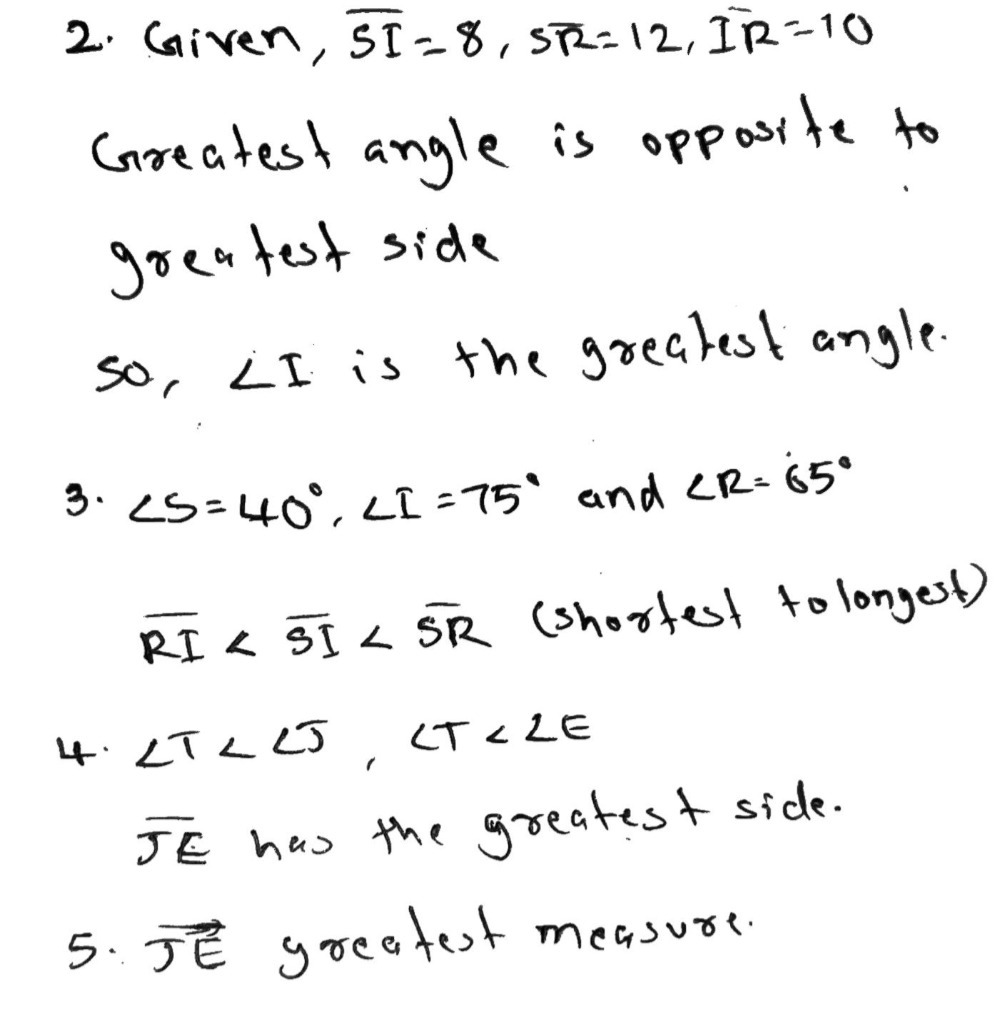 2. Given, S̅I̅ = 8, S̅R̅ = 12, I̅R̅ = 10
Greatest angle is opposite to
greatest side
so, ∠I is the greatest angle.
3. ∠S = 40°, ∠I = 75° and ∠R = 65°
R̅I̅ < S̅I̅ < S̅R̅ (shortest to longest)
4. ∠T < ∠J, ∠T < ∠E
J̅E̅ has the greatest side.
5. J̅E̅ greatest measure.